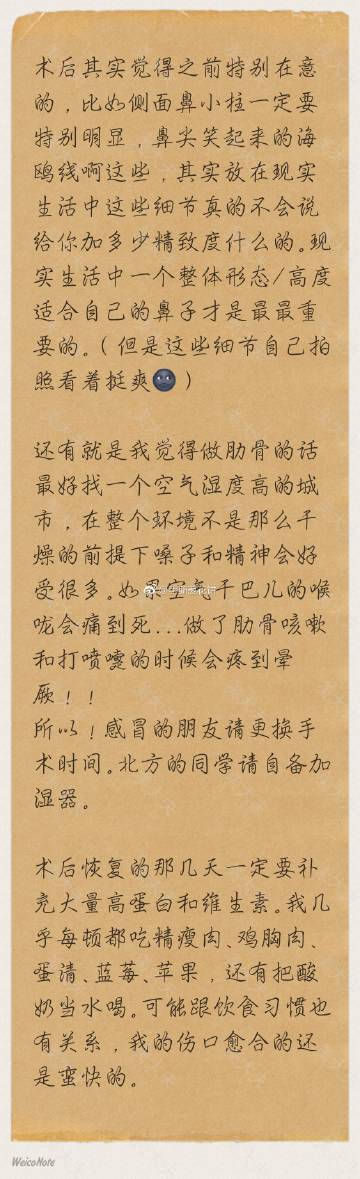 术后其实觉得之前特别在意
的，比如侧面鼻小柱一定要
特别明显，鼻尖笑起来的海
鸥线啊这些，其实放在现实
生活中这些细节真的不会说
给你加多少精致度什么的。现
实生活中一个整体形态/高度
适合自己的鼻子才是最最重
要的。（但是这些细节自己拍
照看着挺爽🌚）
还有就是我觉得做肋骨的话
最好找一个空气湿度高的城
市，在整个环境不是那么干
燥的前提下嗓子和精神会好
受很多。如果空气干巴儿的喉
咙会痛到死...做了肋骨咳嗽
和打喷嚏的时候会疼到晕
厥！！
所以！感冒的朋友请更换手
术时间。北方的同学请自备加
湿器。
术后恢复的那几天一定要补
充大量高蛋白和维生素。我几
乎每顿都吃精瘦肉、鸡胸肉、
蛋清、蓝莓、苹果，还有把酸
奶当水喝。可能跟饮食习惯也
有关系，我的伤口愈合的还
是蛮快的。
WeicoNote